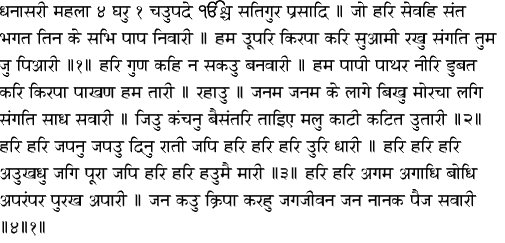 धनासरी महला ४ घरु १ चउपदे ੴ सतिगुर प्रसादि ॥ जो हरि सेवहि संत
भगत तिन के सभि पाप निवारी ॥ हम ऊपरि किरपा करि सुआमी रखु संगति तुम
जु पिआरी ॥१॥ हरि गुण कहि न सकउ बनवारी ॥ हम पापी पाथर नीरि डुबत
करि किरपा पाखण हम तारी ॥ रहाउ ॥ जनम जनम के लागे बिखु मोरचा लगि
संगति साध सवारी ॥ जिउ कंचनु बैसंतरि ताइिए मलु काटी कटित उतारी ॥२॥
हरि हरि जपनु जपउ दिनु राती जपि हरि हरि हरि उरि धारी ॥ हरि हरि हरि
अउखधु जगि पूरा जपि हरि हरि हउमै मारी ॥३॥ हरि हरि अगम अगाधि बोधि
अपरंपर पुरख अपारी ॥ जन कउ क्रिपा करहु जगजीवन जन नानक पैज सवारी
॥४॥१॥